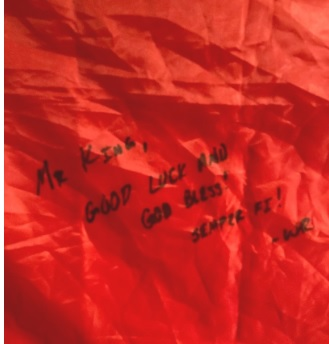 Mr King,
GOOD LUCK AND
GOD BLESS!
SEMPER FI!